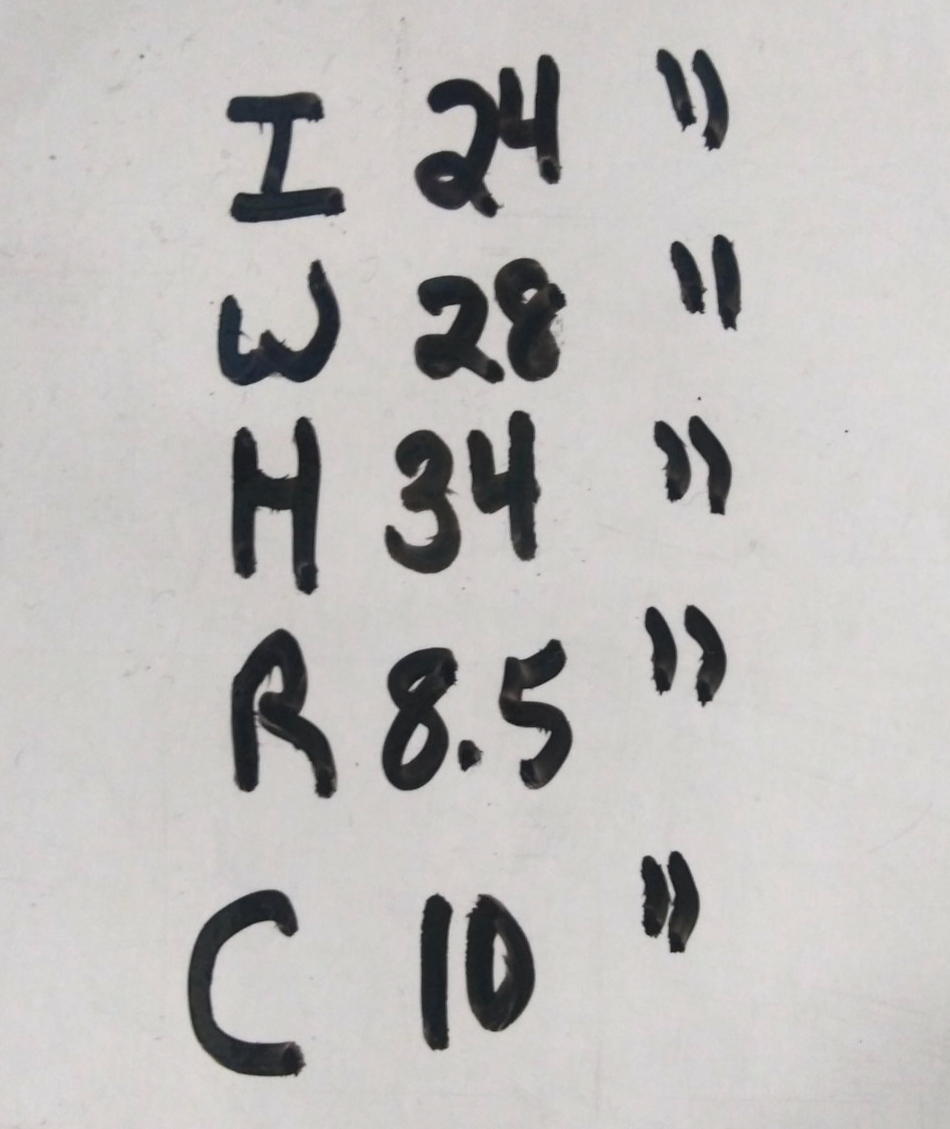 I 24 "
W 28 "
H 34 "
R 8.5 "
C 10 "